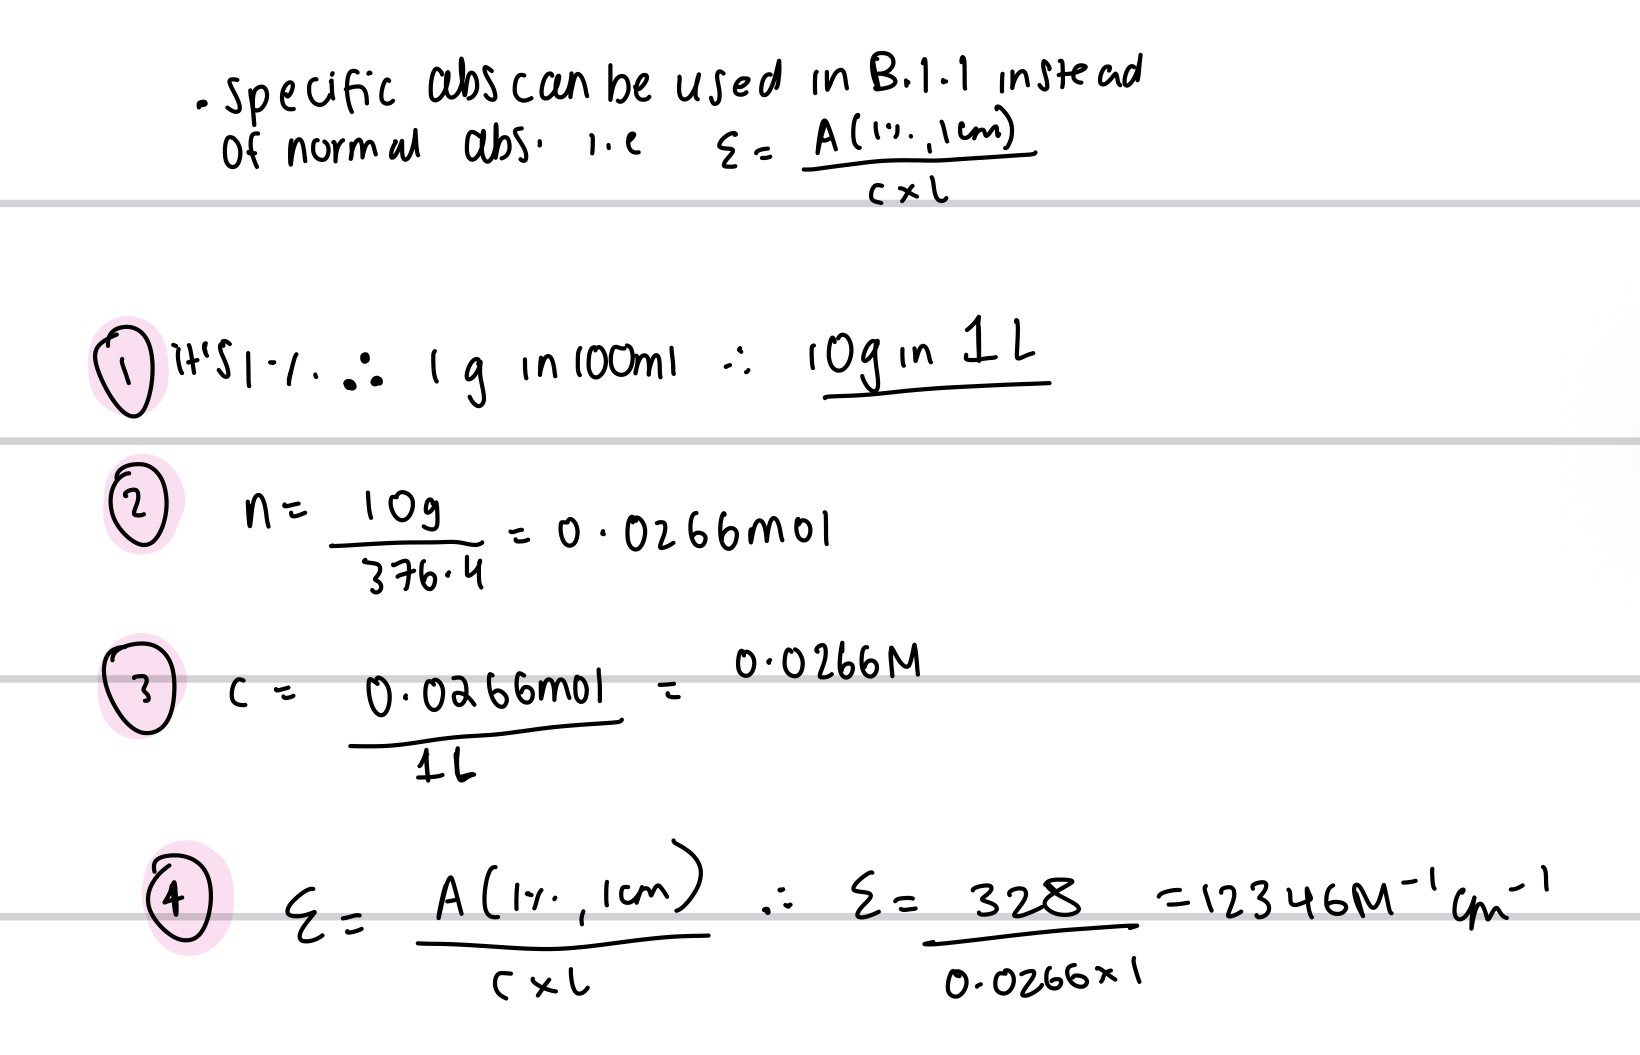 • Specific abs can be used in B.1.1 instead
of normal abs. i.e ε = A(1%, 1cm) / c x L
① it's 1% ∴ 1g in 100ml ∴ 10g in 1L
② n = 10g / 376.4 = 0.0266mol
③ c = 0.0266mol / 1L = 0.0266M
④ ε = A(1%, 1cm) / c x L ∴ ε = 328 / 0.0266 x 1 = 12346M⁻¹ cm⁻¹